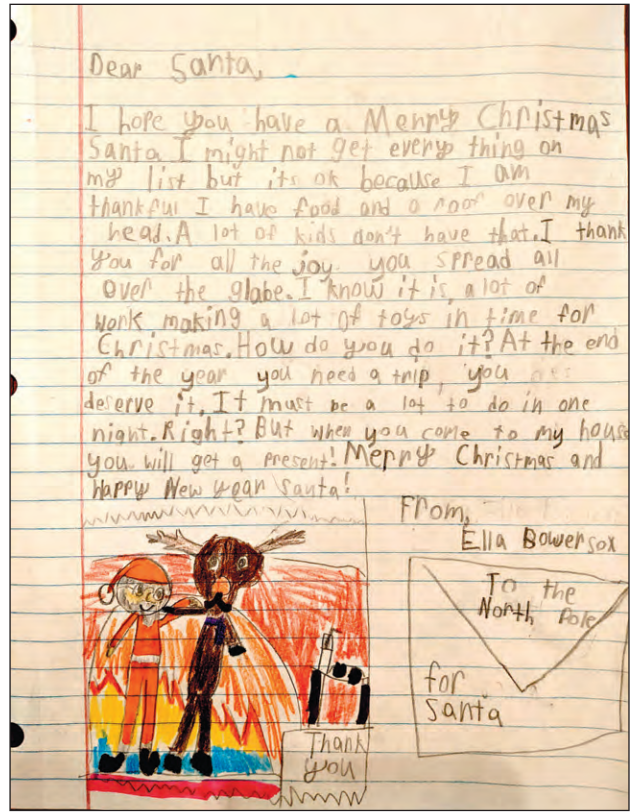 Dear Santa,
I hope you have a Merry Christmas
Santa I might not get every thing on
my list but its ok because I am
thankful I have food and a roof over my
head. A lot of kids don't have that. I thank
you for all the joy you spread all
over the glabe. I know it is a lot of
work making a lot of toys in time for
Christmas. How do you do it? At the end
of the year you need a trip, you
deserve it. It must be a lot to do in one
night. Right? But when you come to my house
you will get a present! Merry Christmas and
Happy New year Santa!
From,
Ella Bowersox
To the
North Pole
for
Santa
Thank
you